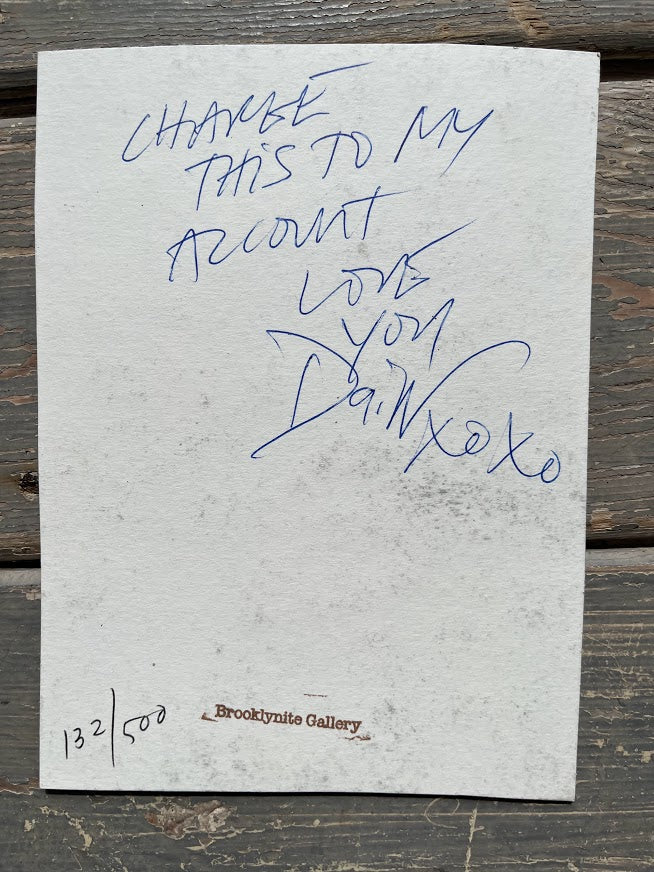 CHARGE
THIS TO MY
ACCOUNT
LOVE
YOU
DaiN xoxo
132/500
Brooklynite Gallery